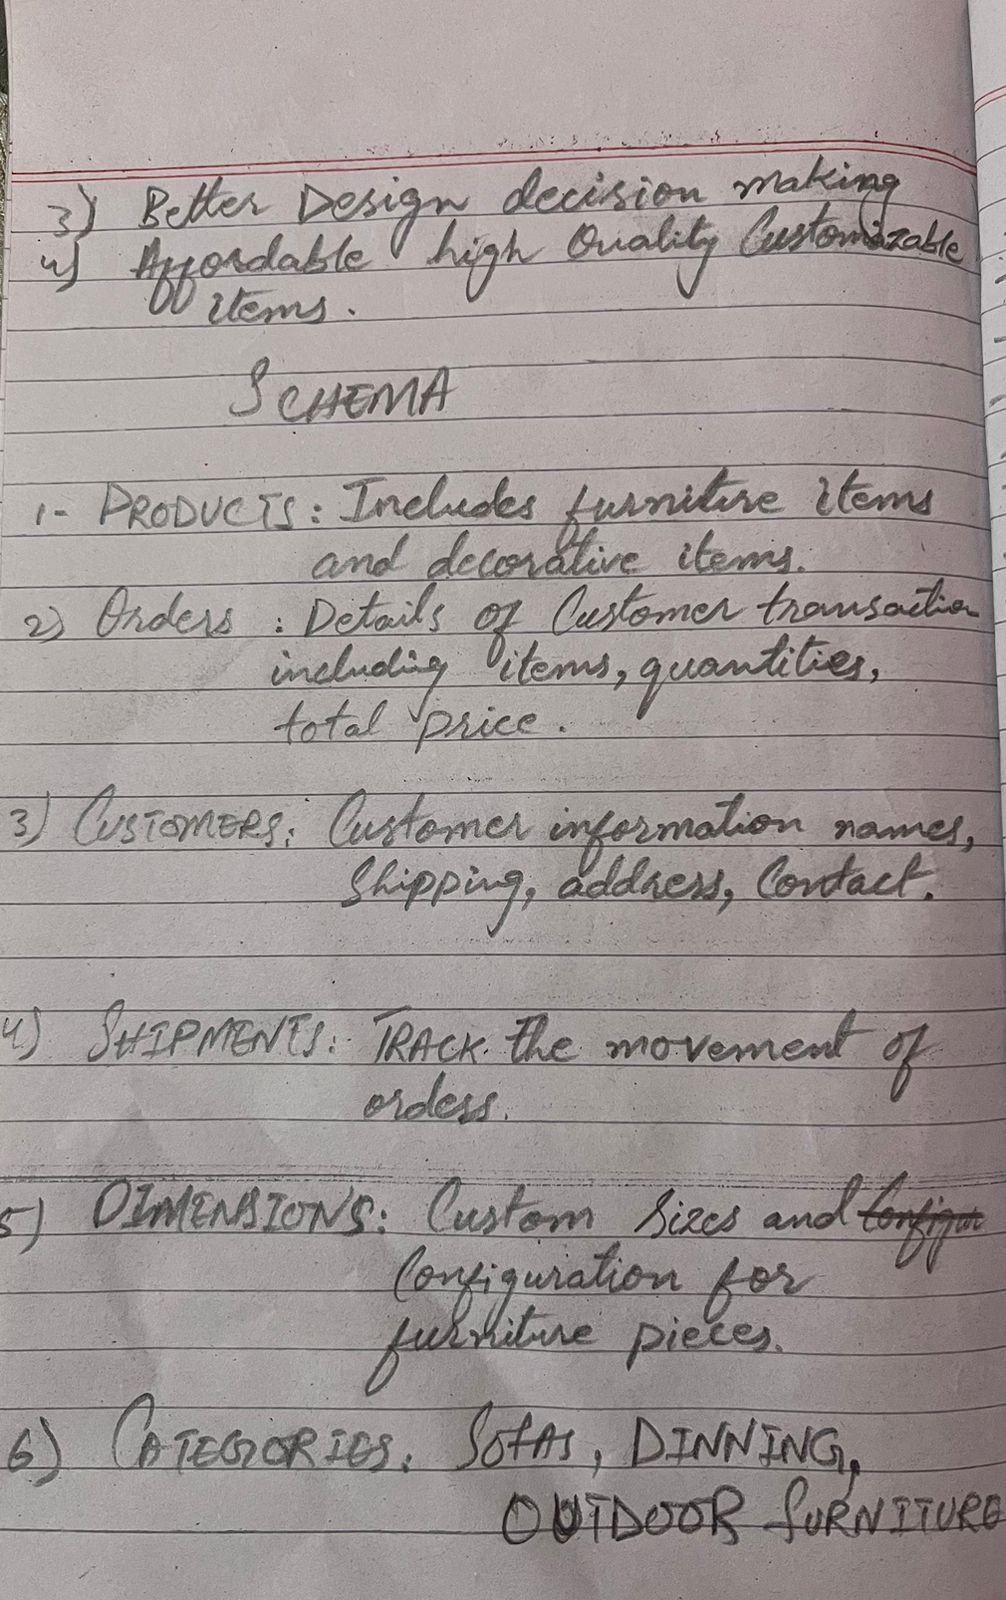 3) Better Design decision making
4) Affordable high Quality Customizable
items.
SCHEMA
1- PRODUCTS: Includes furniture items
and decorative items.
2) Orders : Details of Customer transaction
including items, quantities,
total price.
3) CUSTOMERS: Customer information names,
Shipping, address, Contact.
4) SHIPMENTS: TRACK the movement of
orders.
5) DIMENSIONS: Custom Sizes and Configur
Configuration for
furniture pieces.
6) CATEGORIES: SOFAS, DINNING,
OUTDOOR FURNITURE